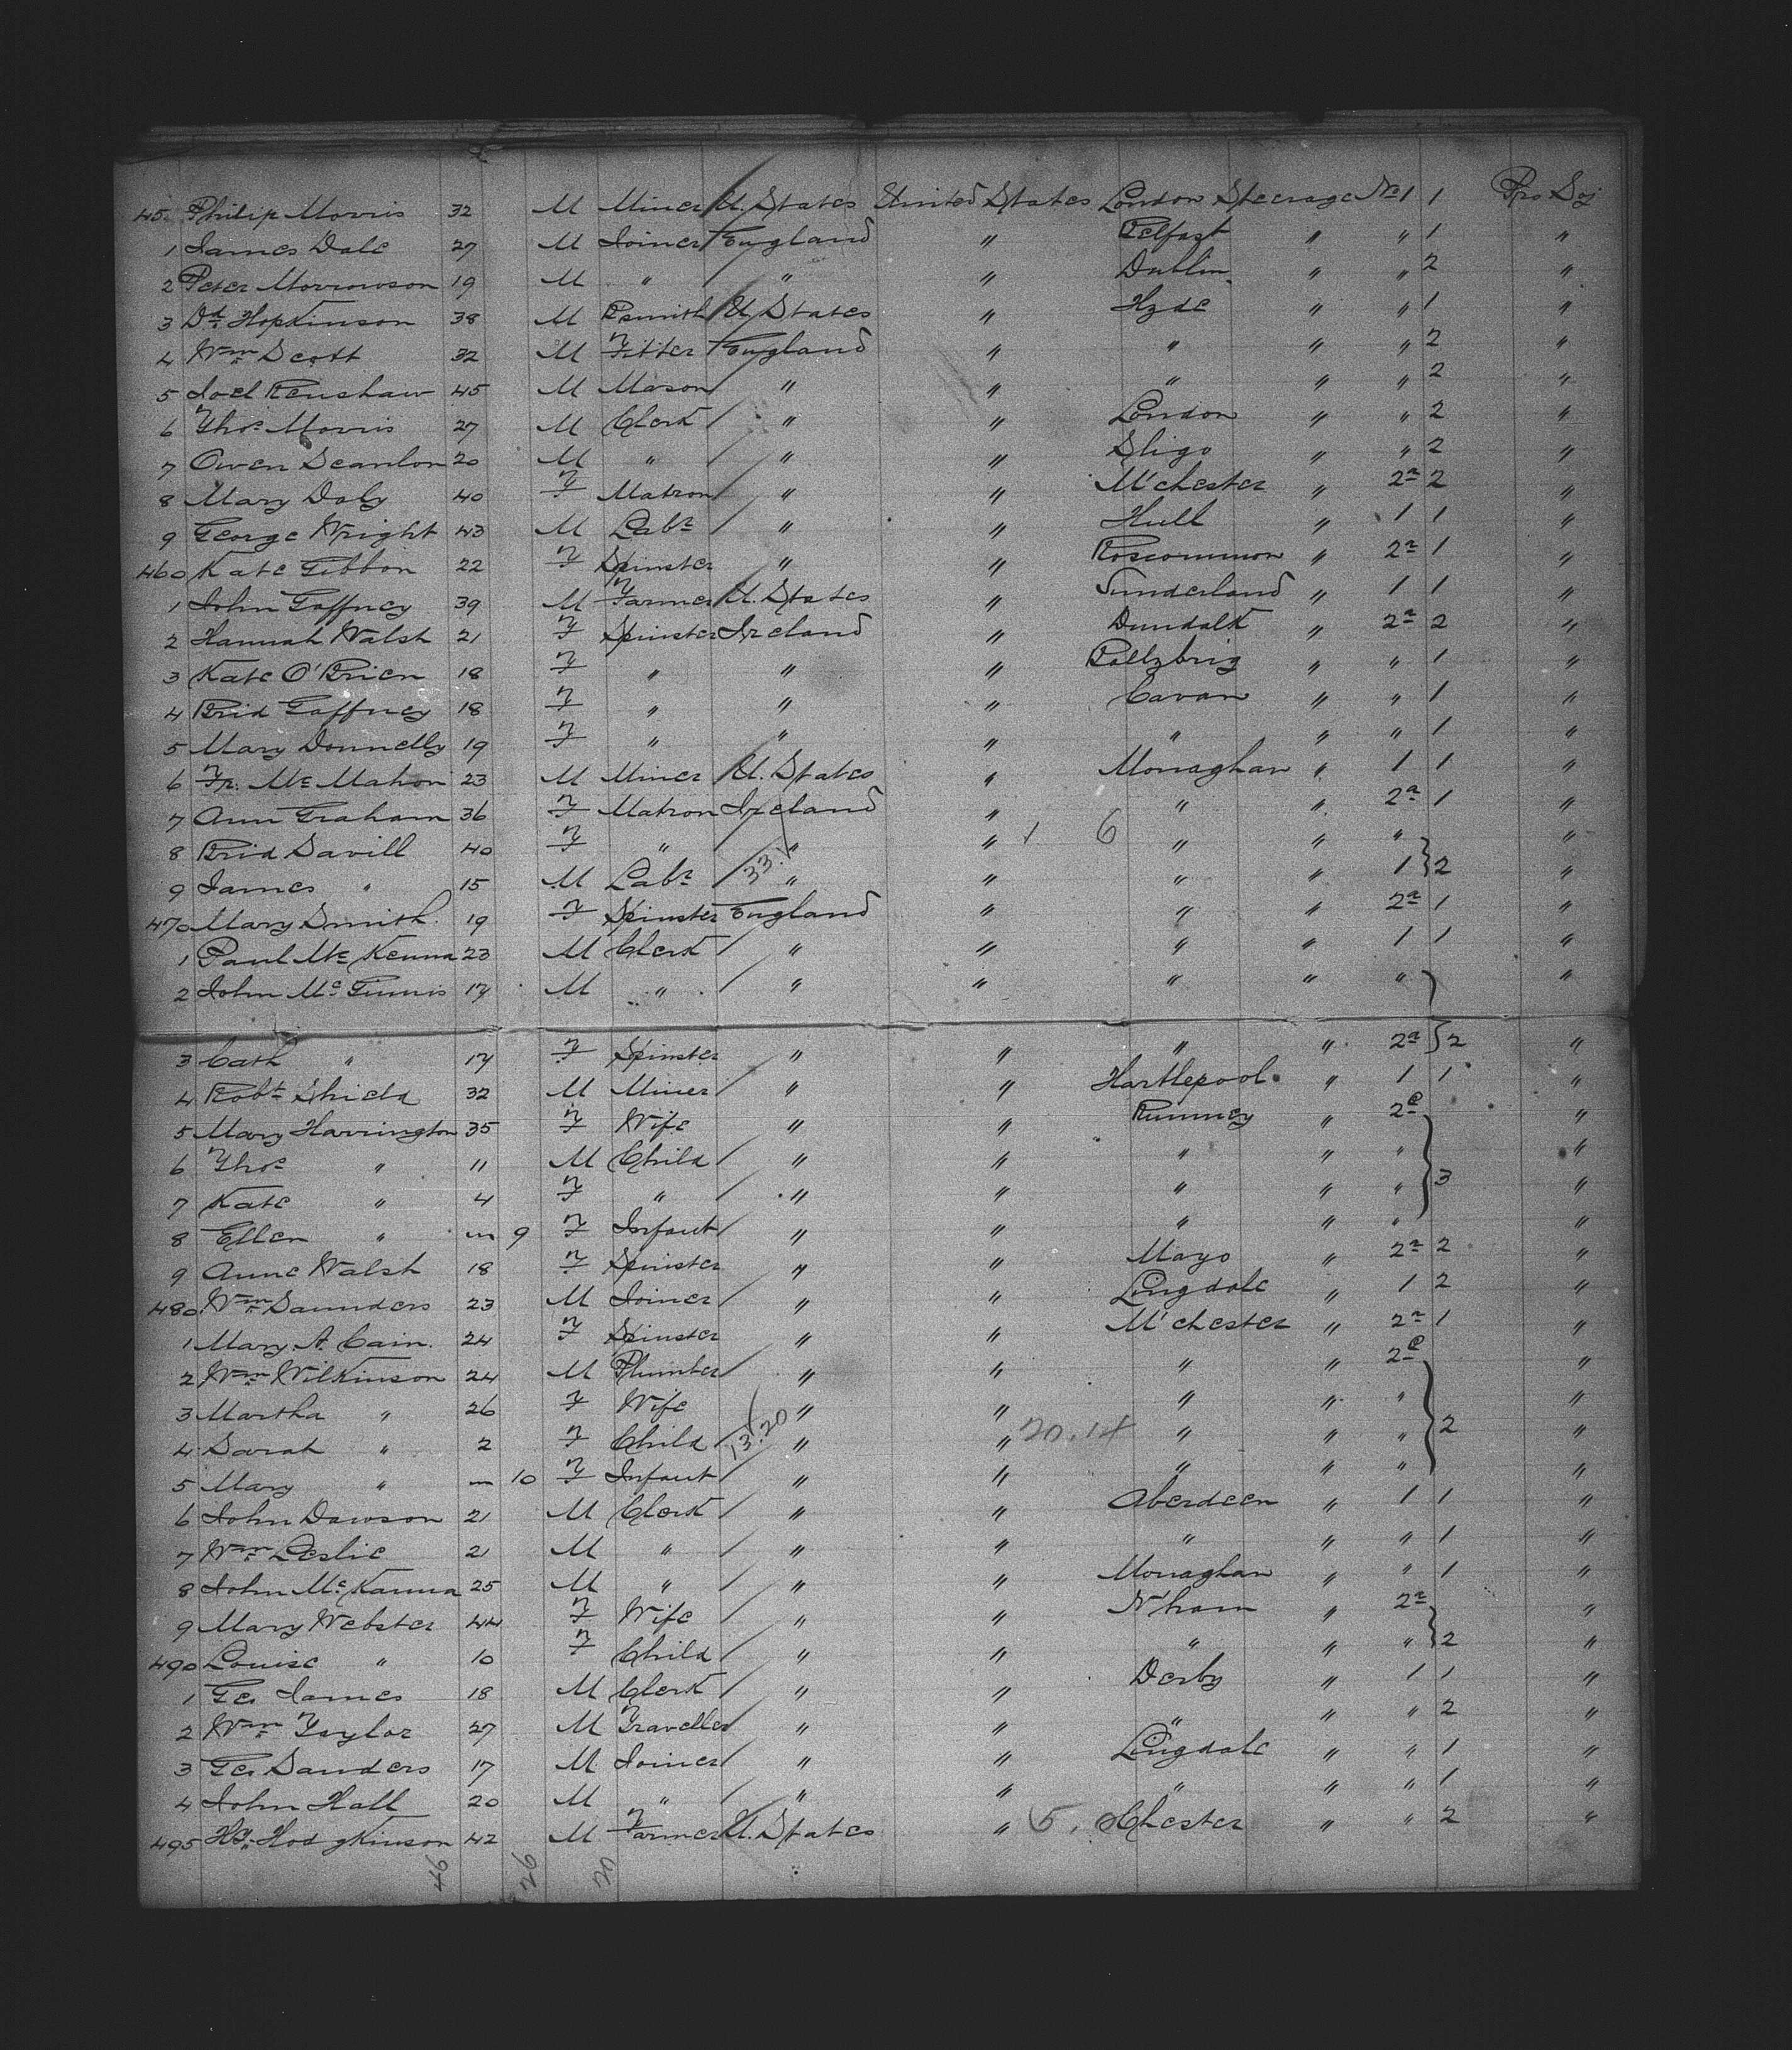 45. Philip Morris 32 M Miner U. States United States London Steerage No 1 1 Pro Soj
1 James Dale 27 M Joiner England " Belfast " " 1 "
2 Peter Morrowson 19 M " " " Dublin " " 2 "
3 Dd Hopkinson 38 M Bsmith U. States " Hyde " " 1 "
4 Wm Scott 32 M Fitter England " " " " 2 "
5 Joel Renshaw 45 M Mason " " " " " 2 "
6 Thos Morris 27 M Clerk " " London " " 2 "
7 Owen Scanlon 20 M " " " Sligo " " 2 "
8 Mary Daly 40 F Matron " " M'chester " 2a 2 "
9 George Wright 43 M Labr " " Hull " 1 1 "
460 Kate Gibbon 22 F Spinster " " Roscommon " 2a 1 "
1 John Gaffney 39 M Farmer U. States " Sunderland " 1 1 "
2 Hannah Walsh 21 F Spinster Ireland " Dundalk " 2a 2 "
3 Kate O'Brien 18 F " " " " " 1 "
4 Brid Gaffney 18 F " " " Cavan " " 1 "
5 Mary Donnelly 19 F " " " " " " 1 "
6 Fr. Mc Mahon 23 M Miner U. States " Monaghan " 1 1 "
7 Ann Graham 36 F Matron Ireland " " " 2a 1 "
8 Brid Savill 40 F " " " 1 6 " " " "
9 James " 15 M Labr 33.1 " " " " 1 2 "
470 Mary Smith 19 F Spinster England " " " 2a 1 "
1 Paul Mc Kenna 23 M Clerk " " " " 1 1 "
2 John Mc Ginnis 17 M " " " " " " "
3 Cath " 17 F Spinster " " " " 2a 2 "
4 Robt Shield 32 M Miner " " Hartlepool " 1 1 "
5 Mary Harrington 35 F Wife " " Rumney " 2c "
6 Thos " 11 M Child " " " " " "
7 Kate " 4 F " " " " " " 3 "
8 Ellen " m 9 F Infant " " " " " "
9 Anne Walsh 18 F Spinster " " Mayo " 2a 2 "
480 Wm Saunders 23 M Joiner " " Lingdale " 1 2 "
1 Mary A. Cain. 24 F Spinster " " M'chester " 2a 1 "
2 Wm Wilkinson 24 M Plumber " " " " 2c "
3 Martha " 26 F Wife " " " " " "
4 Sarah " 2 F Child 13.20 " " 20.14 " " " 2 "
5 Mary " m 10 F Infant " " " " " "
6 John Dawson 21 M Clerk " " Aberdeen " 1 1 "
7 Wm Leslie 21 M " " " " " " 1 "
8 John Mc Kanna 25 M " " " Monaghan " " 1 "
9 Mary Webster 44 F Wife " " N'ham " 2a "
490 Louise " 10 F Child " " " " " 2 "
1 Ge. James 18 M Clerk " " Derby " 1 1 "
2 Wm Taylor 27 M Traveller " " " " " 2 "
3 Ge. Sanders 17 M Joiner " " Lingdale " " 1 "
4 John Hall 20 M " " " " " " 1 "
495 Hy. Hodgkinson 42 M Farmer U. States " 5. Chester " " 2 "